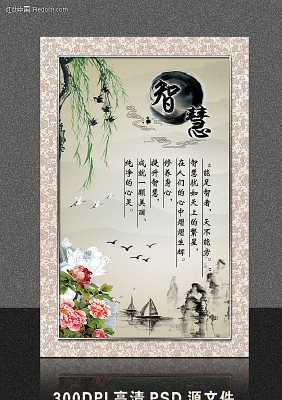 红动中国 Redocn.com
智慧
“能足智者，天不能穷。
智慧犹如天上的繁星，
在人们的心中熠熠生辉。
修养身心，
提升智慧，
成就一颗美丽、
纯净的心灵。
300DPI 高清 PSD 源文件